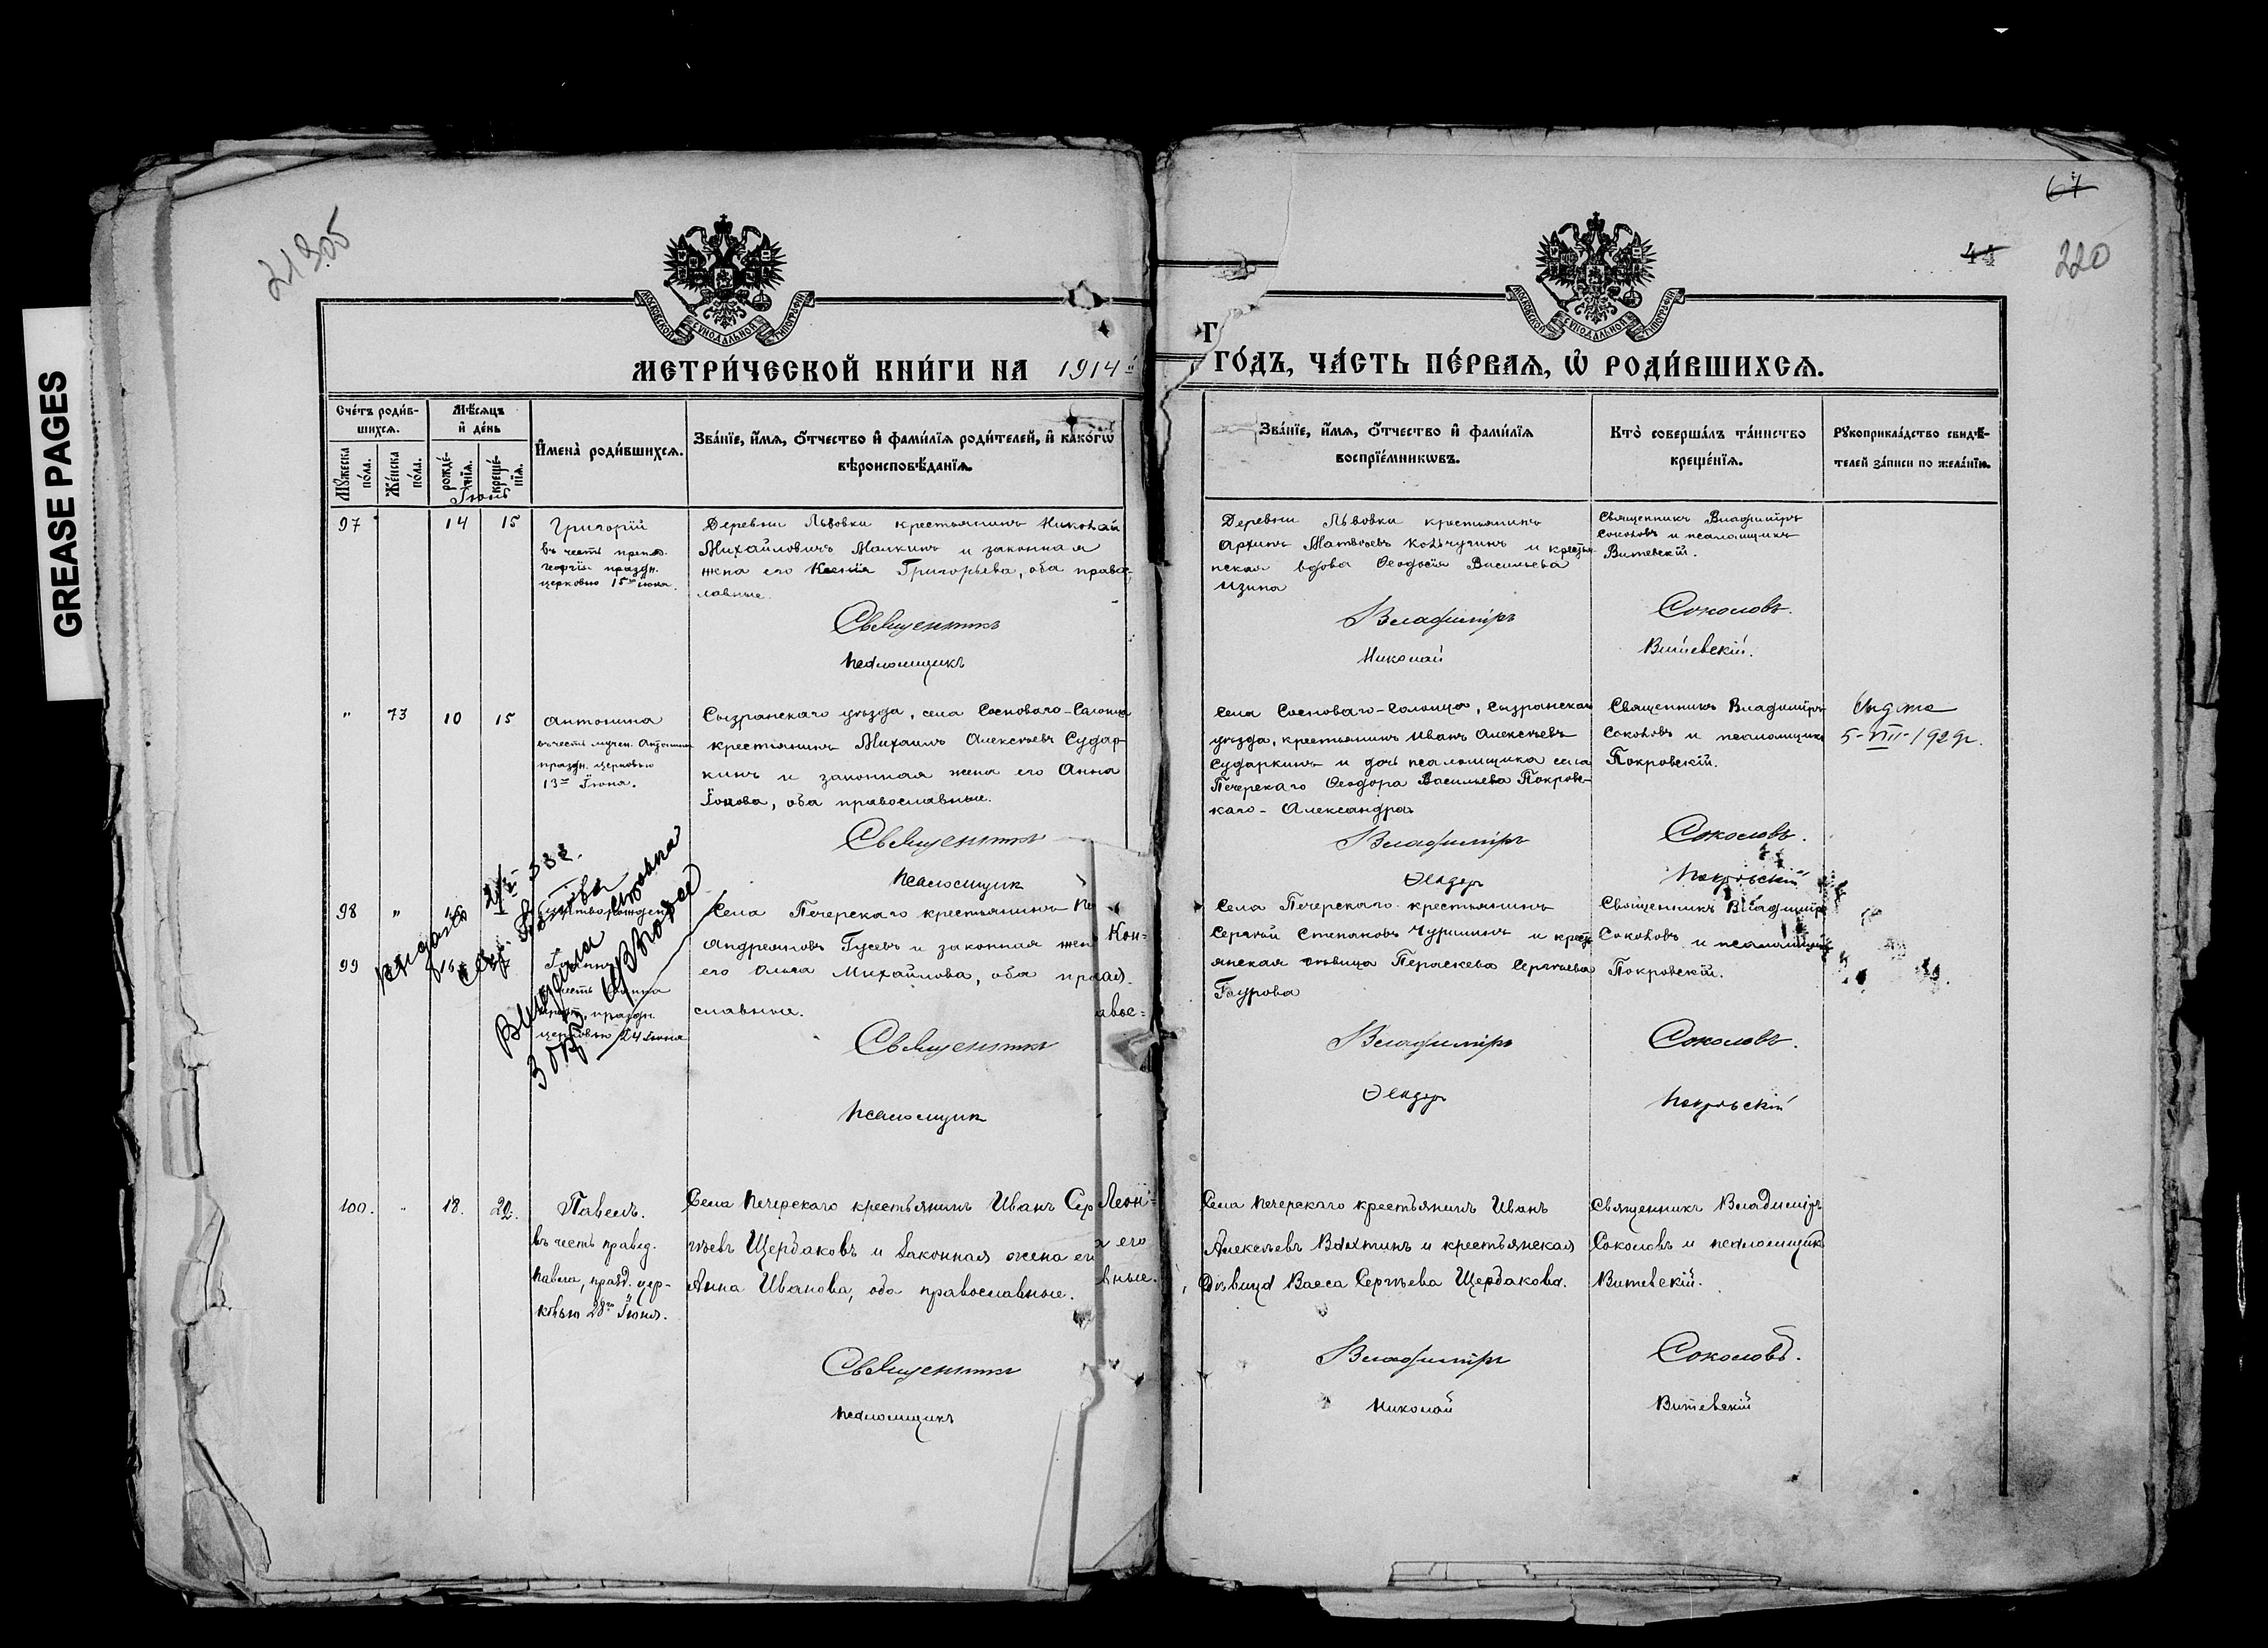 GREASE PAGES
21905
67
44
220
МОСКОВСКОЙ СУНОДАЛЬНОЙ ТИПОГРАФІИ
МОСКОВСКОЙ СУНОДАЛЬНОЙ ТИПОГРАФІИ
МЕТРИ́ЧЕСКОЙ КНИ́ГИ НА 1914й
ГО́ДЪ, ЧА́СТЬ ПЕ́РВАѦ, Ѡ РОДИ́ВШИХСѦ.
Сче́тъ роди́в-
шихсѧ.
Мѹ́жеска по́ла.
Же́нска по́ла.
Мѣ́сяцъ
и де́нь
рожде́-
нїѧ.
креще́-
нїѧ.
Іюнь
Имена̀ роди́вшихсѧ.
Зва́нїе, и́мѧ, ѻ́тчество и фами́лїѧ роди́телей, и како́гѡ
вѣроисповѣ́данїѧ.
Зва́нїе, и́мѧ, ѻ́тчество и фами́лїѧ
воспрїе́мникѡвъ.
Кто̀ соверша́лъ та́инство
креще́нїѧ.
Рѹкоприкла́дство свидѣ́-
телей за́писи по жела́нїю.
97
14
15
Григорій
въ честь преп.
Георгія праздн.
церковью 15го іюня.
Деревни Львовки крестьянинъ Николай
Михайловичъ Малкинъ и законная
жена его Ксенія Григорьева, оба право-
славные.
Священникъ
Псаломщикъ
Деревни Львовки крестьянинъ
Архипъ Матвѣевъ Кольчугинъ и кресть-
янская вдова Ѳеодосія Васильева
Изина
Владиміръ
Николай
Священникъ Владиміръ
Соколовъ и псаломщикъ
Витевскій.
Соколовъ.
Витевскій.
"
73
10
15
Антонина
въ честь мучен. Антонины
праздн. церковью
13го Іюня.
Сызранскаго уѣзда, села Сосноваго-Солонца
крестьянинъ Михаилъ Алексѣевъ Судар-
кинъ и законная жена его Анна
Іонова, оба православные.
Священникъ
Псаломщик
Села Сосноваго-Солонца, Сызранскаго
уѣзда, крестьянинъ Иванъ Алексѣевъ
Сударкинъ и дочь псаломщика села
Печерскаго Ѳеодора Васильева Покровс-
каго - Александра
Владиміръ
Ѳеодоръ
Священникъ Владиміръ
Соколовъ и псаломщикъ
Покровскій.
Соколовъ.
Покровскій
Выдана
5-VIII-1929г.
98
"
99
Іоаннъ
честь Іоанна
праздн.
церковью 24 іюня
Села Печерскаго крестьянинъ
Андреяновъ Гусевъ и законная жена
его Ольга Михайлова, оба право-
славные.
Кон=
авос=
Священникъ
Псаломщик
Села Печерскаго крестьянинъ
Сергѣй Степановъ Чуркинъ и кресть-
янская дѣвица Параскева Сергѣева
Гаурова
Владиміръ
Ѳеодоръ
Священникъ Владиміръ
Соколовъ и псаломщикъ
Покровскій.
Соколовъ.
Покровскій
100.
"
18.
22.
Павелъ.
въ честь правед.
Павла, празд. цер-
ковью 28го Іюня.
Села Печерскаго крестьянинъ Иванъ Сер
гѣевъ Щербаковъ и законная жена ег
Анна Иванова, оба православные.
Леон=
а его
вные.
Священникъ
Псаломщикъ
Села Печерскаго крестьянинъ Иванъ
Алексѣевъ Вахтинъ и крестьянская
дѣвица Васса Сергѣева Щербакова.
Владиміръ
Николай
Священникъ Владиміръ
Соколовъ и псаломщикъ
Витевскій.
Соколовъ.
Витевскій